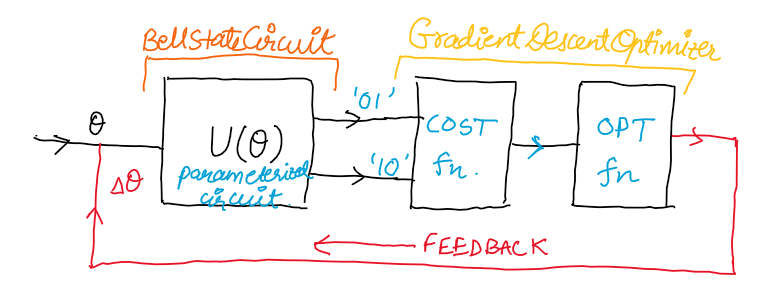 BellStateCircuit
GradientDescentOptimizer
θ
U(θ)
parameterized
circuit.
'01'
'10'
COST
fn.
OPT
fn
Δθ
FEEDBACK